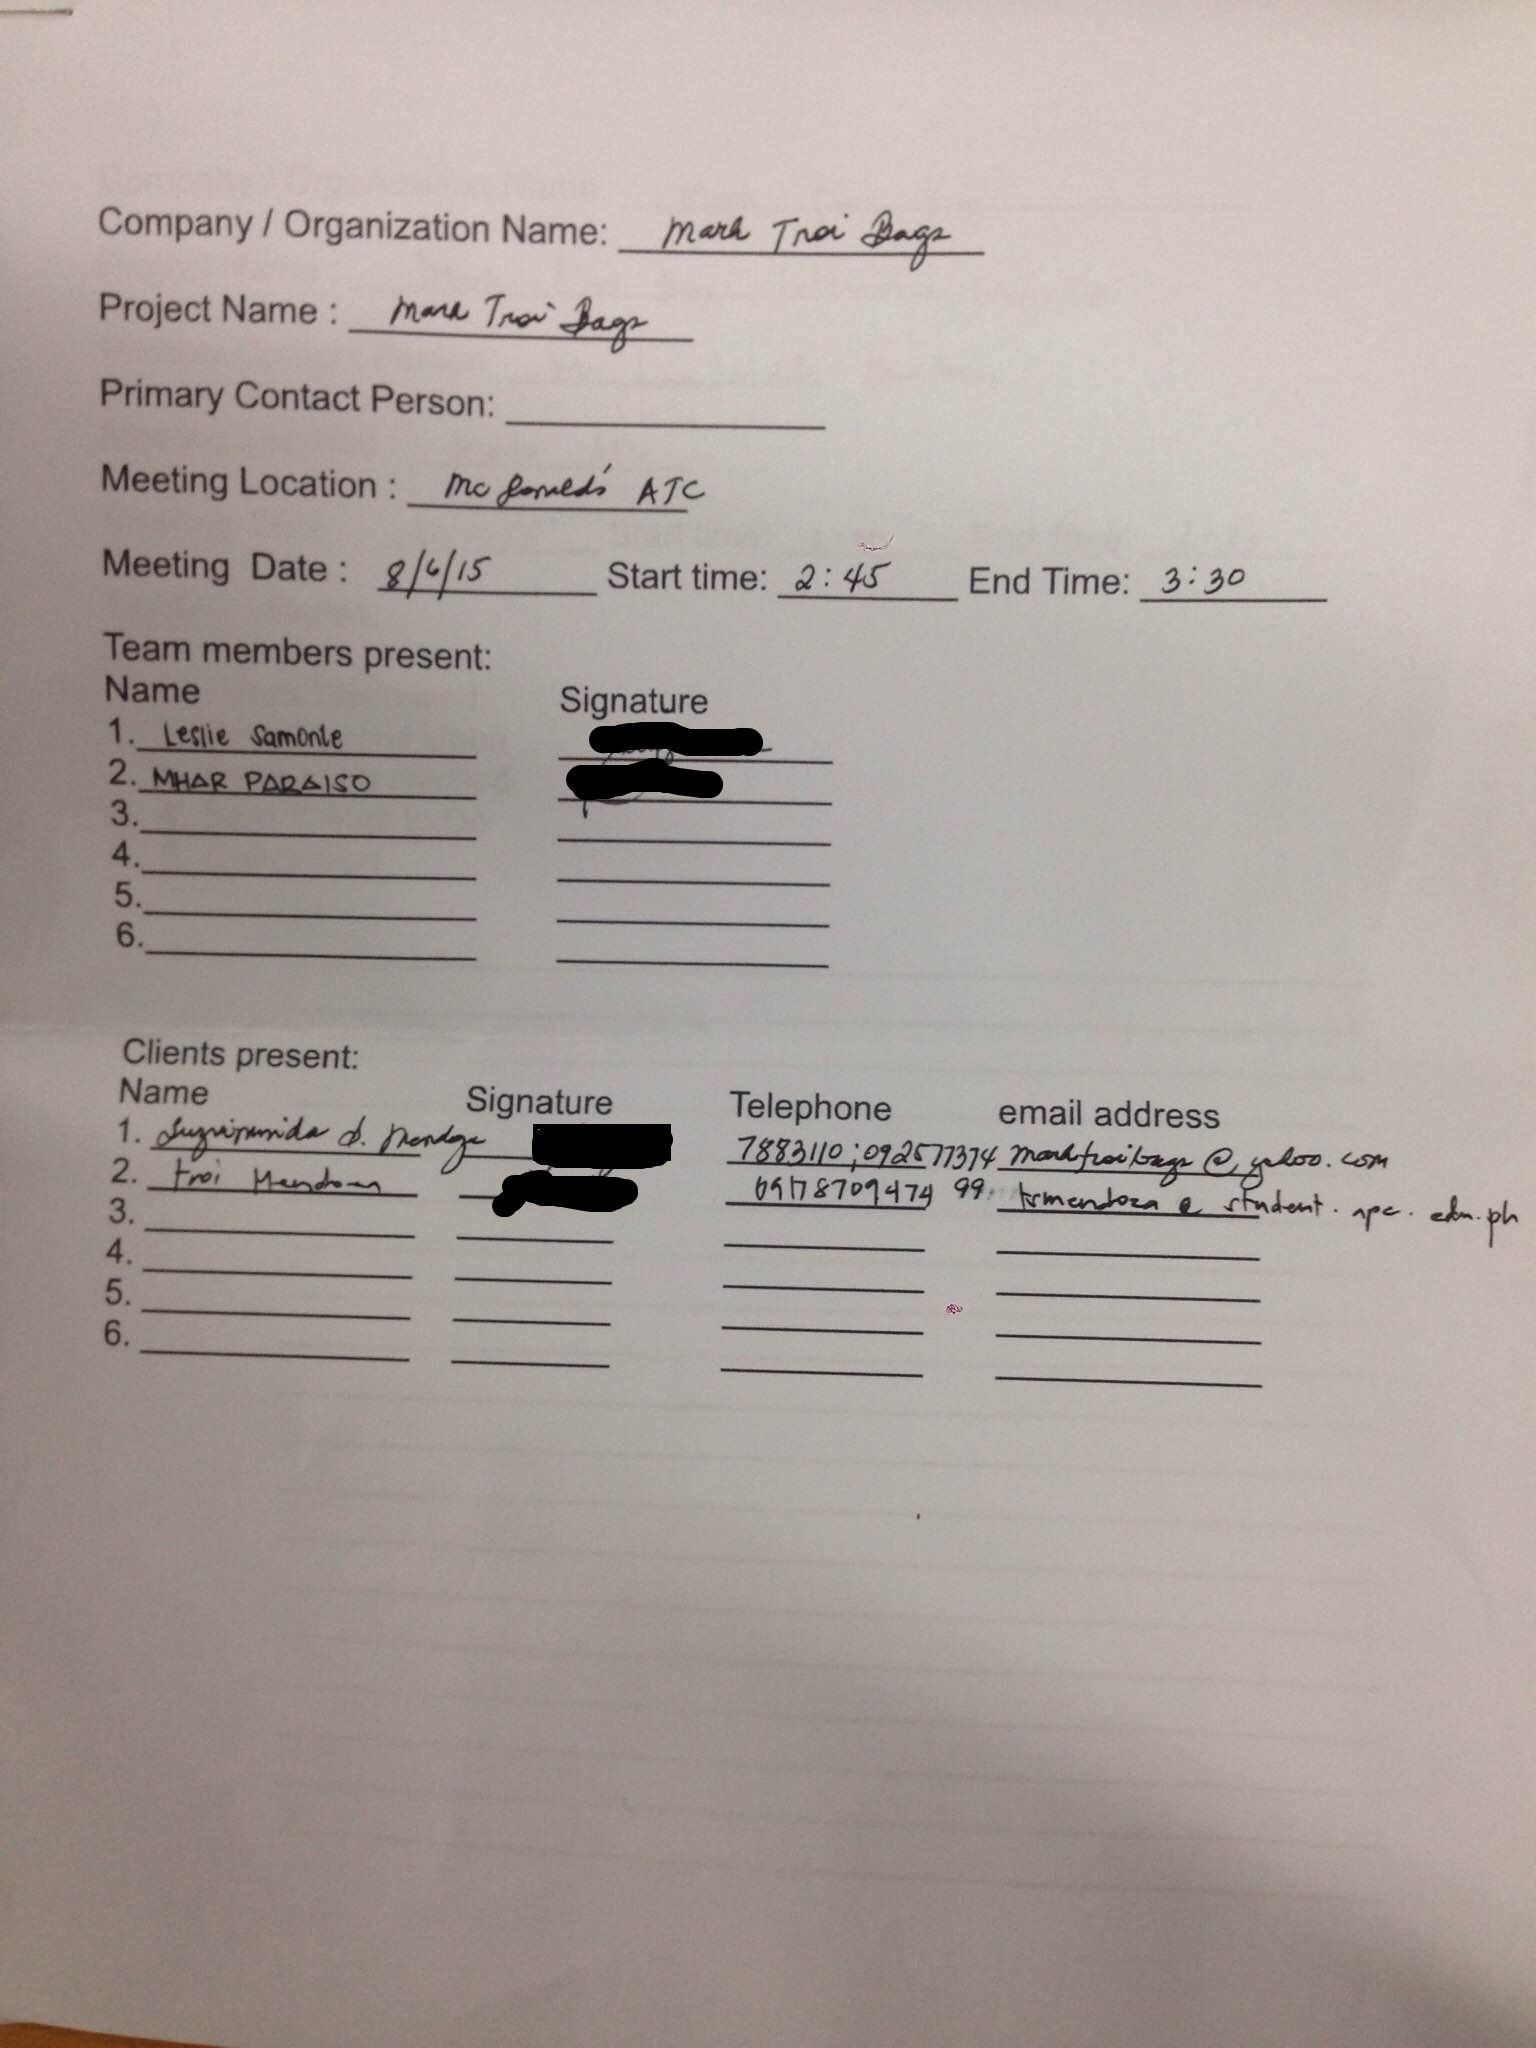 Company / Organization Name: Mark Troi Bags
Project Name : Mark Troi Bags
Primary Contact Person:
Meeting Location : McDonald's ATC
Meeting Date : 8/6/15 Start time: 2:45 End Time: 3:30
Team members present:
Name Signature
1. Leslie Samonte
2. MHAR PARAISO
3.
4.
5.
6.
Clients present:
Name Signature Telephone email address
1. Luzviminda S. Mendoza 7883110; 092577374 marktroibags@yahoo.com
2. Troi Mendoza 09178709474 99 tsmendoza@student.apc.edu.ph
3.
4.
5.
6.